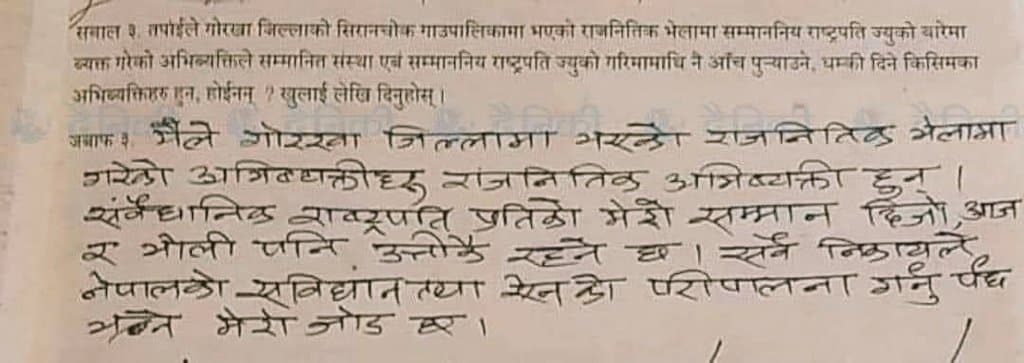 सवाल ३. तपाईले गोरखा जिल्लाको सिरानचोक गाउपालिकामा भएको राजनितिक भेलामा सम्माननिय राष्ट्रपति ज्युको बारेमा
व्यक्त गरेको अभिब्यक्तिले सम्मानित संस्था एवं सम्माननिय राष्ट्रपति ज्युको गरिमामाथि नै आँच पुर्‍याउने, धम्की दिने किसिमका
अभिब्यक्तिहरु हुन, होईनन् ? खुलाई लेखि दिनुहोस् ।
जवाफ ३. मैले गोरखा जिल्लामा भएको राजनितिक भेलामा
गरेको अभिब्यक्तीहरु राजनितिक अभिब्यक्ती हुन ।
संवैधानिक राष्ट्रपति प्रतिको मेरो सम्मान हिजो, आज
र भोली पनि उत्तीकै रहने छ । सवै निकायले
नेपालको संविधान तथा ऐनको परीपालना गर्नु पर्छ
भन्ने मेरो जोड छ ।